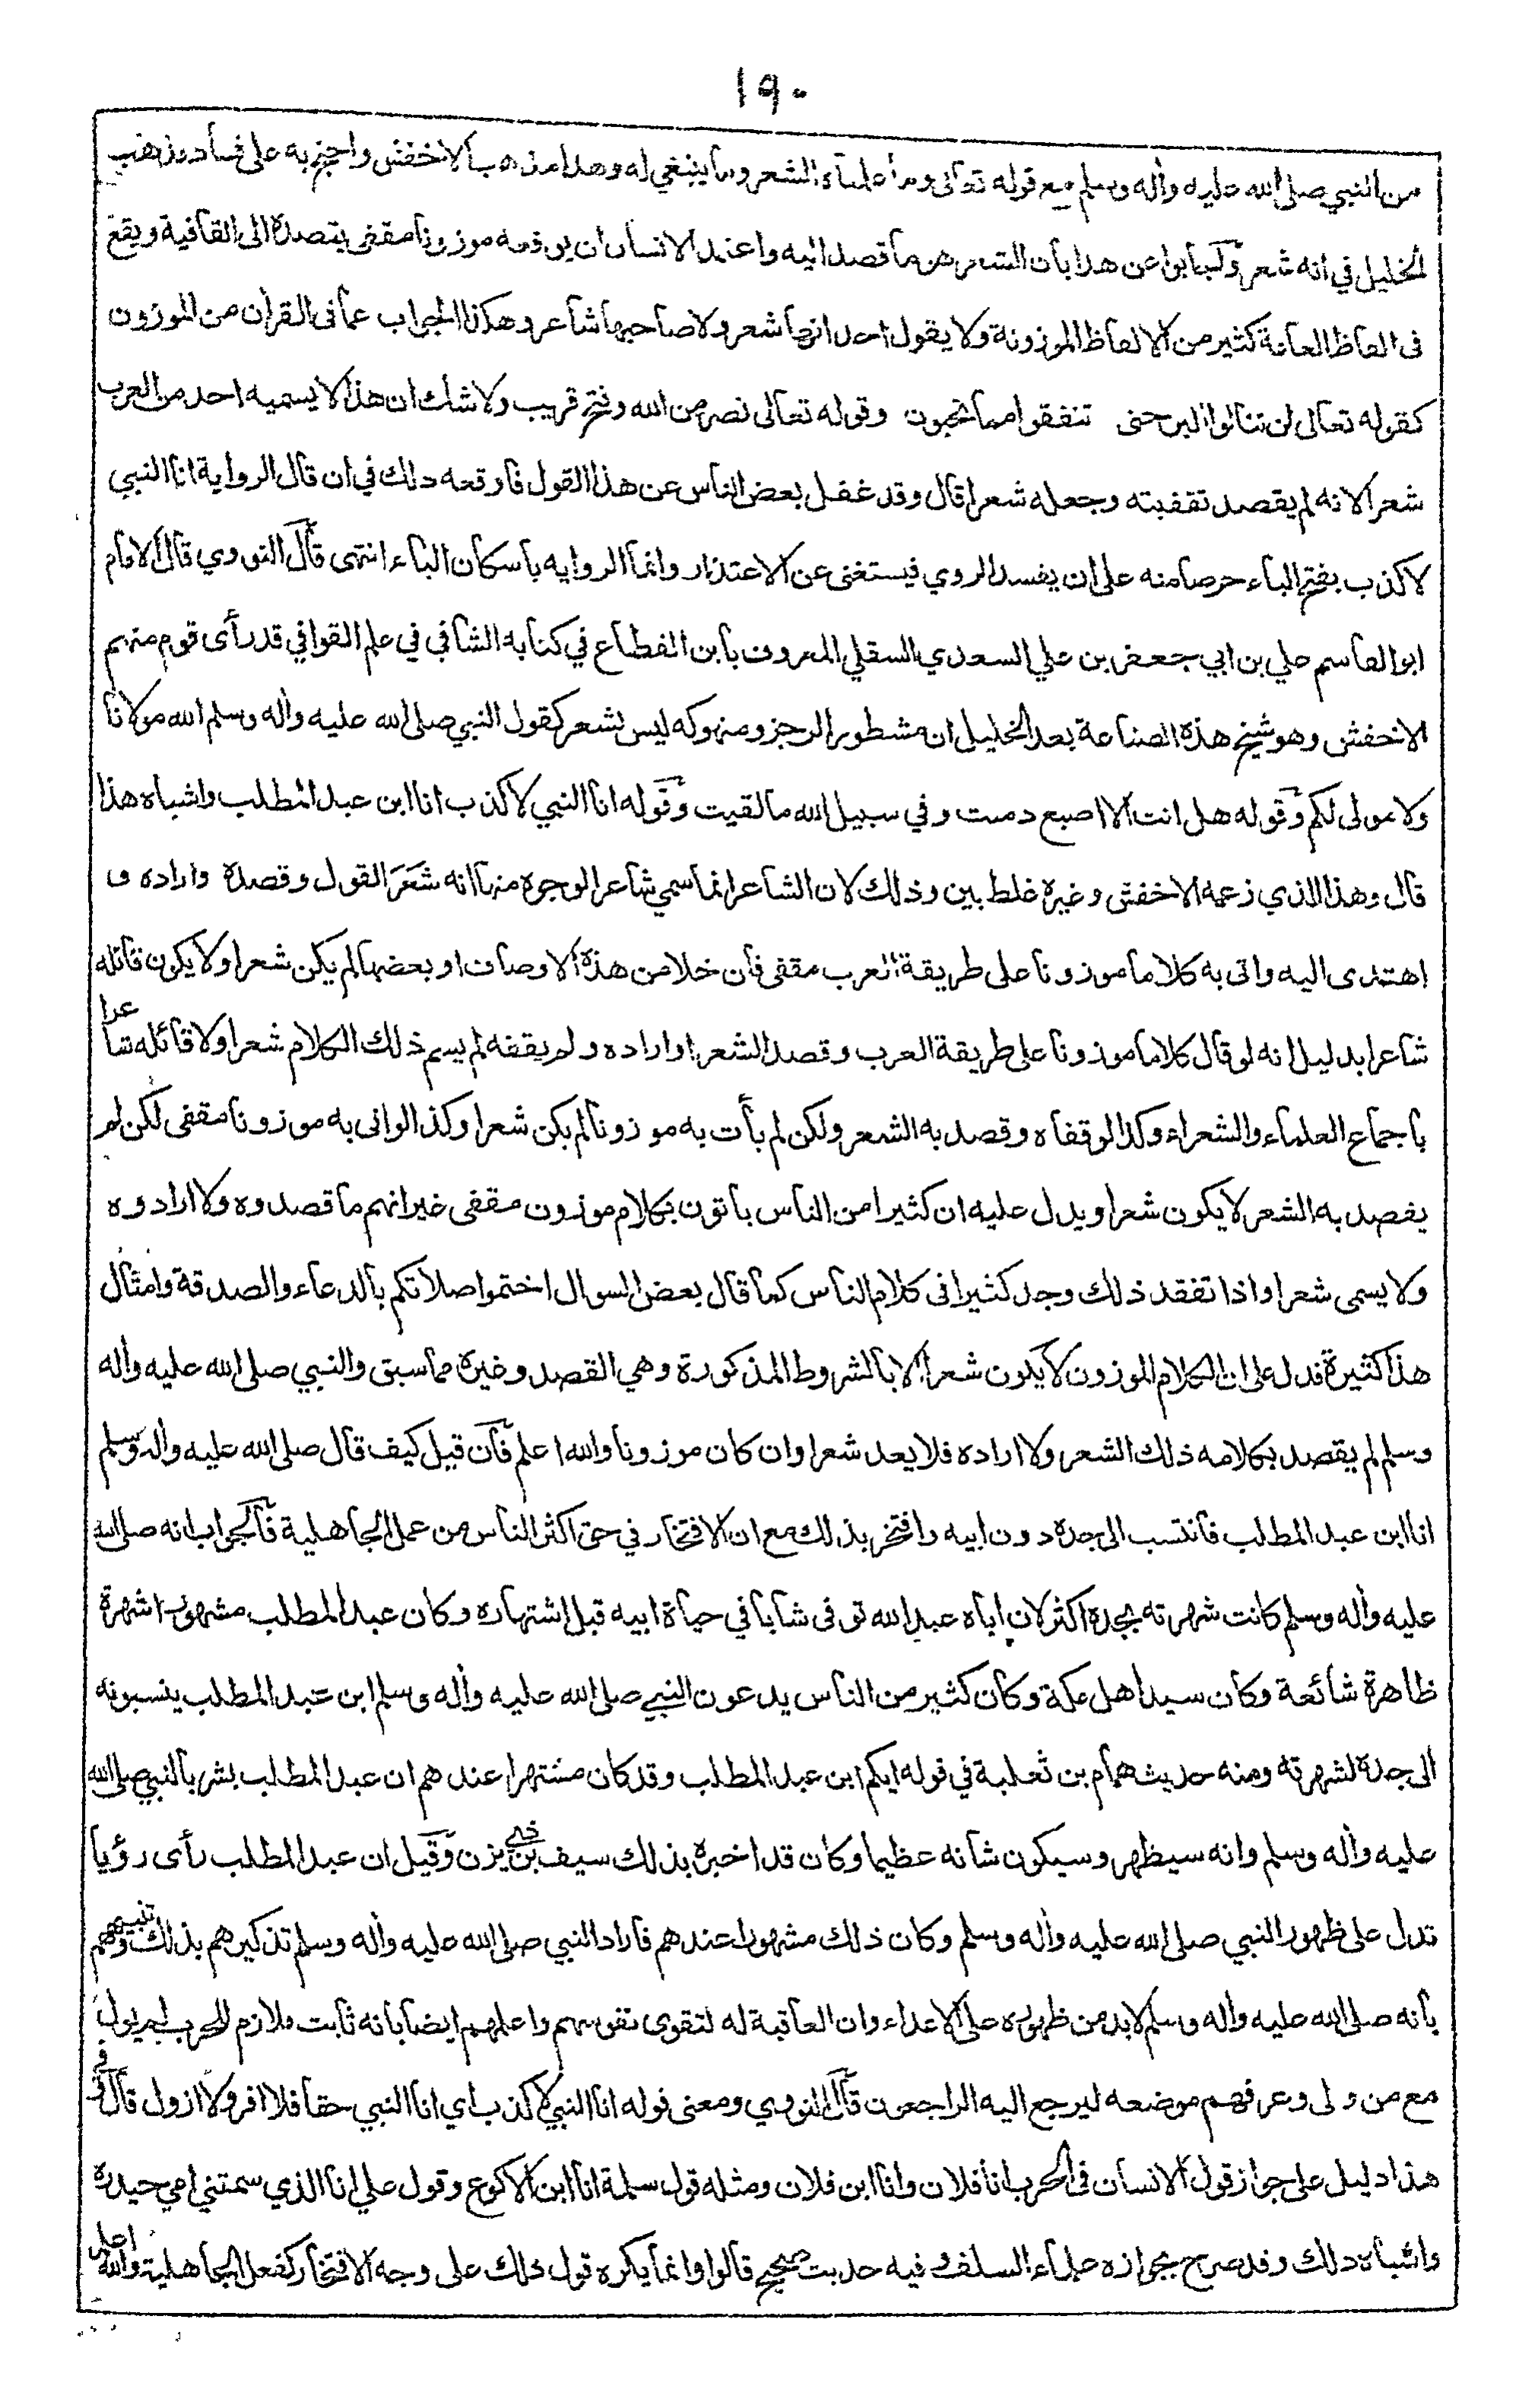 ١٩٠
من النبي صلى الله عليه وأله وسلم مع قوله تعالى وما علمناه الشعر وما ينبغي له وهذا مذهب الاخفش واحتج به على فساد مذهب
الخليل في انه شعر وأجابوا عن هذا بان الشعر هو ما قصد اليه واعتمد الانسان ان يوقعه موزونا مقفى يقصده الى القافية ويقع
فى الفاظ العامة كثير من الالفاظ الموزونة ولا يقول احد انها شعر ولا صاحبها شاعر وهكذا الجواب عما فى القرأن من الموزون
كقوله تعالى لن تنالوا البر حتى تنفقوا مما تحبون وقوله تعالى نصر من الله وفتح قريب ولا شك ان هذا لا يسميه احد من العرب
شعرا لانه لم يقصد تقفيته وجعله شعرا قال وقد غفل بعض الناس عن هذا القول فاوقعه ذلك في ان قال الرواية انا النبي
لا كذب بفتح الباء حرصا منه على ان يفسد الروي فيستغنى عن الاعتذار وانما الروايه باسكان الباء انتهى قال النووي قال الامام
ابو القاسم علي بن ابي جعفر بن علي السعدي السقلي المعروف بابن القطاع في كتابه الشافي في علم القوافي قد رأى قوم منهم
الاخفش وهو شيخ هذه الصناعة بعد الخليل ان مشطور الرجز ومنهوكه ليس بشعر كقول النبي صلى الله عليه وأله وسلم الله مولانا
ولا مولى لكم وقوله هل انت الا اصبع دميت وفي سبيل الله ما لقيت وقوله انا النبي لا كذب انا ابن عبد المطلب واشباه هذا
قال وهذا الذي زعمه الاخفش وغيره غلط بين وذلك لان الشاعر انما سمي شاعرا لوجوه منها انه شَعَرَ القول وقصده واراده و
اهتدى اليه واتى به كلاما موزونا على طريقة العرب مقفى فان خلا من هذه الاوصاف او بعضها لم يكن شعرا ولا يكون قائله
شاعرا بدليل انه لو قال كلاما موزونا على طريقة العرب وقصد الشعر او اراده ولم يقفه لم يسم ذلك الكلام شعرا ولا قائله شاعرا
باجماع العلماء والشعراء وكذا لو قفاه وقصد به الشعر ولكن لم يأت به موزونا لم يكن شعرا وكذا لو اتى به موزونا مقفى لكن لم
يقصد به الشعر لا يكون شعرا ويدل عليه ان كثيرا من الناس ياتون بكلام موزون مقفى غير انهم ما قصدوه ولا ارادوه
ولا يسمى شعرا واذا تفقد ذلك وجد كثيرا فى كلام الناس كما قال بعض السوال اختموا صلاتكم بالدعاء والصدقة وامثال
هذا كثيرة فدل على ان الكلام الموزون لا يكون شعرا الا بالشروط المذكورة وهي القصد وغيره مما سبق والنبي صلى الله عليه وأله
وسلم لم يقصد بكلامه ذلك الشعر ولا اراده فلا يعد شعرا وان كان موزونا والله اعلم فان قيل كيف قال صلى الله عليه وأله وسلم
انا ابن عبد المطلب فانتسب الى جده دون ابيه وافتخر بذلك مع ان الافتخار في حق اكثر الناس من عمل الجاهلية فالجواب انه صلى الله
عليه وأله وسلم كانت شهرته بجده اكثر لان اباه عبد الله توفى شابا في حياة ابيه قبل اشتهاره وكان عبد المطلب مشهورا شهرة
ظاهرة شائعة وكان سيد اهل مكة وكان كثير من الناس يدعون النبي صلى الله عليه وأله وسلم ابن عبد المطلب ينسبونه
الى جده لشهرته ومنه حديث همام بن ثعلبة في قوله ايكم ابن عبد المطلب وقد كان مشتهرا عندهم ان عبد المطلب بشر بالنبي صلى الله
عليه وأله وسلم وانه سيظهر وسيكون شانه عظيما وكان قد اخبره بذلك سيف بن ذي يزن وقيل ان عبد المطلب رأى رؤيا
تدل على ظهور النبي صلى الله عليه وأله وسلم وكان ذلك مشهورا عندهم فاراد النبي صلى الله عليه وأله وسلم تذكيرهم بذلك وتنبيههم
بانه صلى الله عليه وأله وسلم لا بد من ظهوره على الاعداء وان العاقبة له لتقوى نفوسهم واعلمهم ايضا بانه ثابت ملازم للحرب لم يول
مع من ولى وعرفهم موضعه ليرجع اليه الراجعون قال النووي ومعنى قوله انا النبي لا كذب اي انا النبي حقا فلا افر ولا ازول قال وفى
هذا دليل على جواز قول الانسان فى الحرب انا فلان وانا ابن فلان ومثله قول سلمة انا ابن الاكوع وقول علي انا الذي سمتني امي حيدره
واشباه ذلك وقد صرح بجوازه علماء السلف وفيه حديث صحيح قالوا وانما يكره قول ذلك على وجه الافتخار كفعل الجاهلية والله اعلم